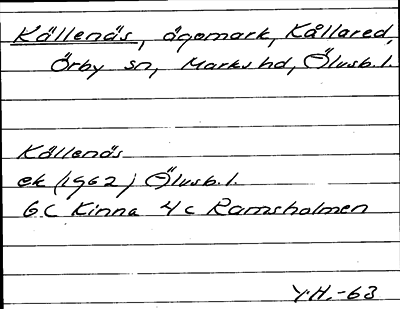 Källenäs, ägomark, Kållared,
Örby sn, Marks hd, Älvsb. l.
Källenäs
ek (1962) Älvsb. l.
6 c Kinna 4 c Ramsholmen
Y.H. -63